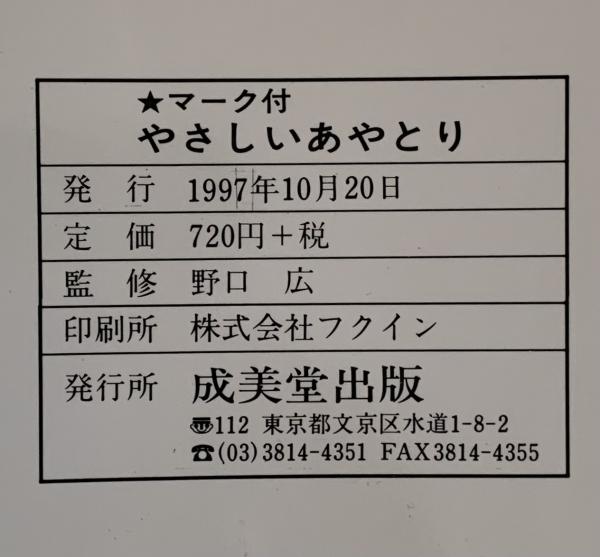 ★マーク付
やさしいあやとり
発 行 1997年10月20日
定 価 720円+税
監 修 野口 広
印刷所 株式会社フクイン
発行所 成美堂出版
〠112 東京都文京区水道1-8-2
☎(03)3814-4351 FAX3814-4355